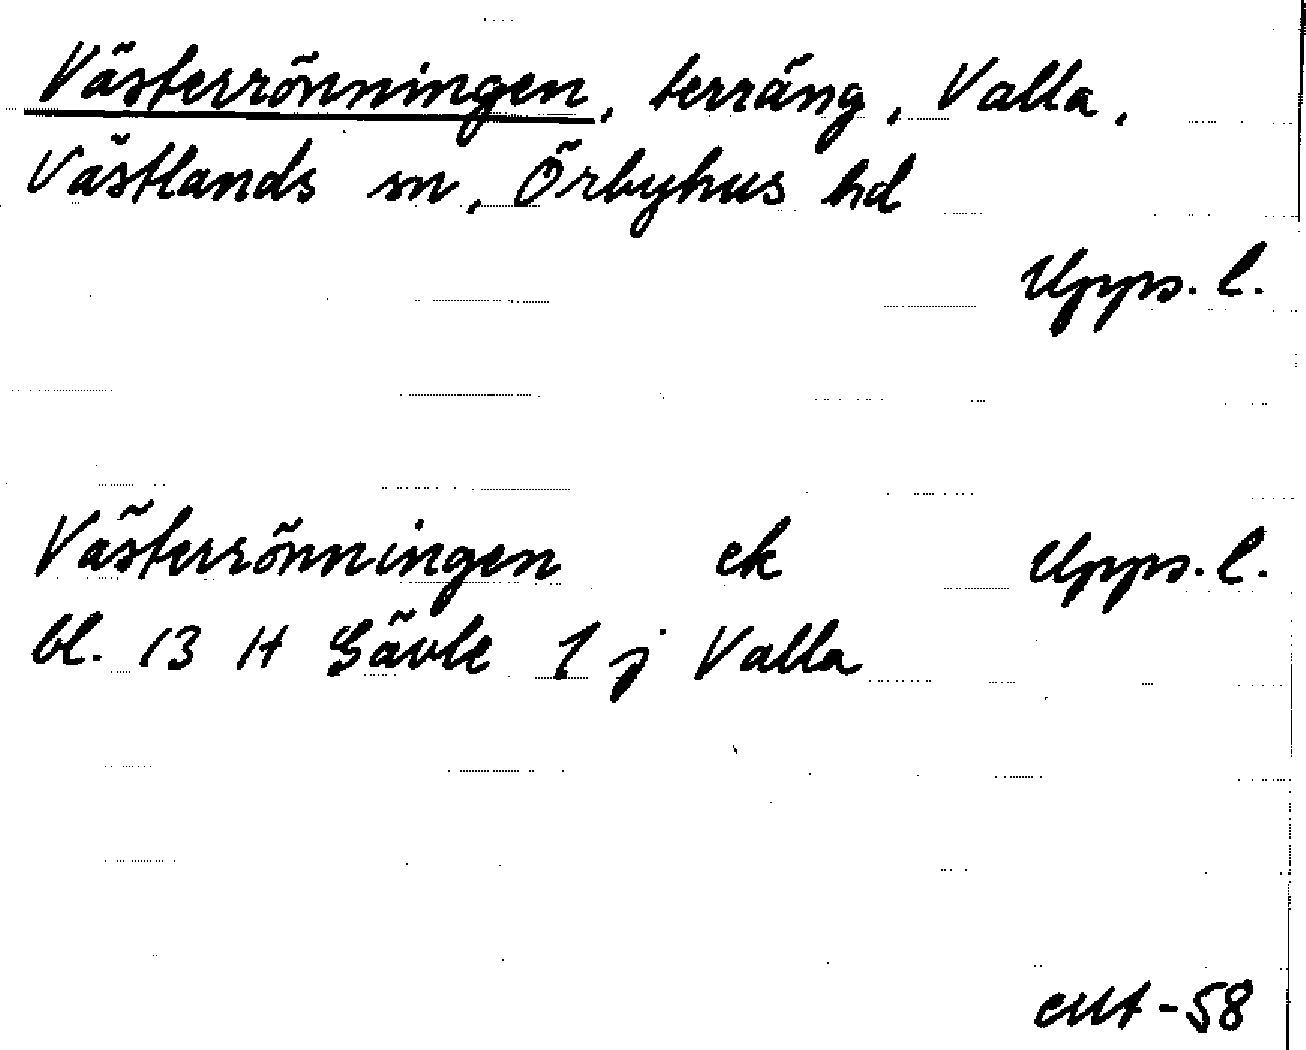 Västerrönningen, terräng, Valla,
Västlands sn, Örbyhus hd
Upps. l.
Västerrönningen ek Upps. l.
bl. 13 H Gävle 1 j Valla
-58